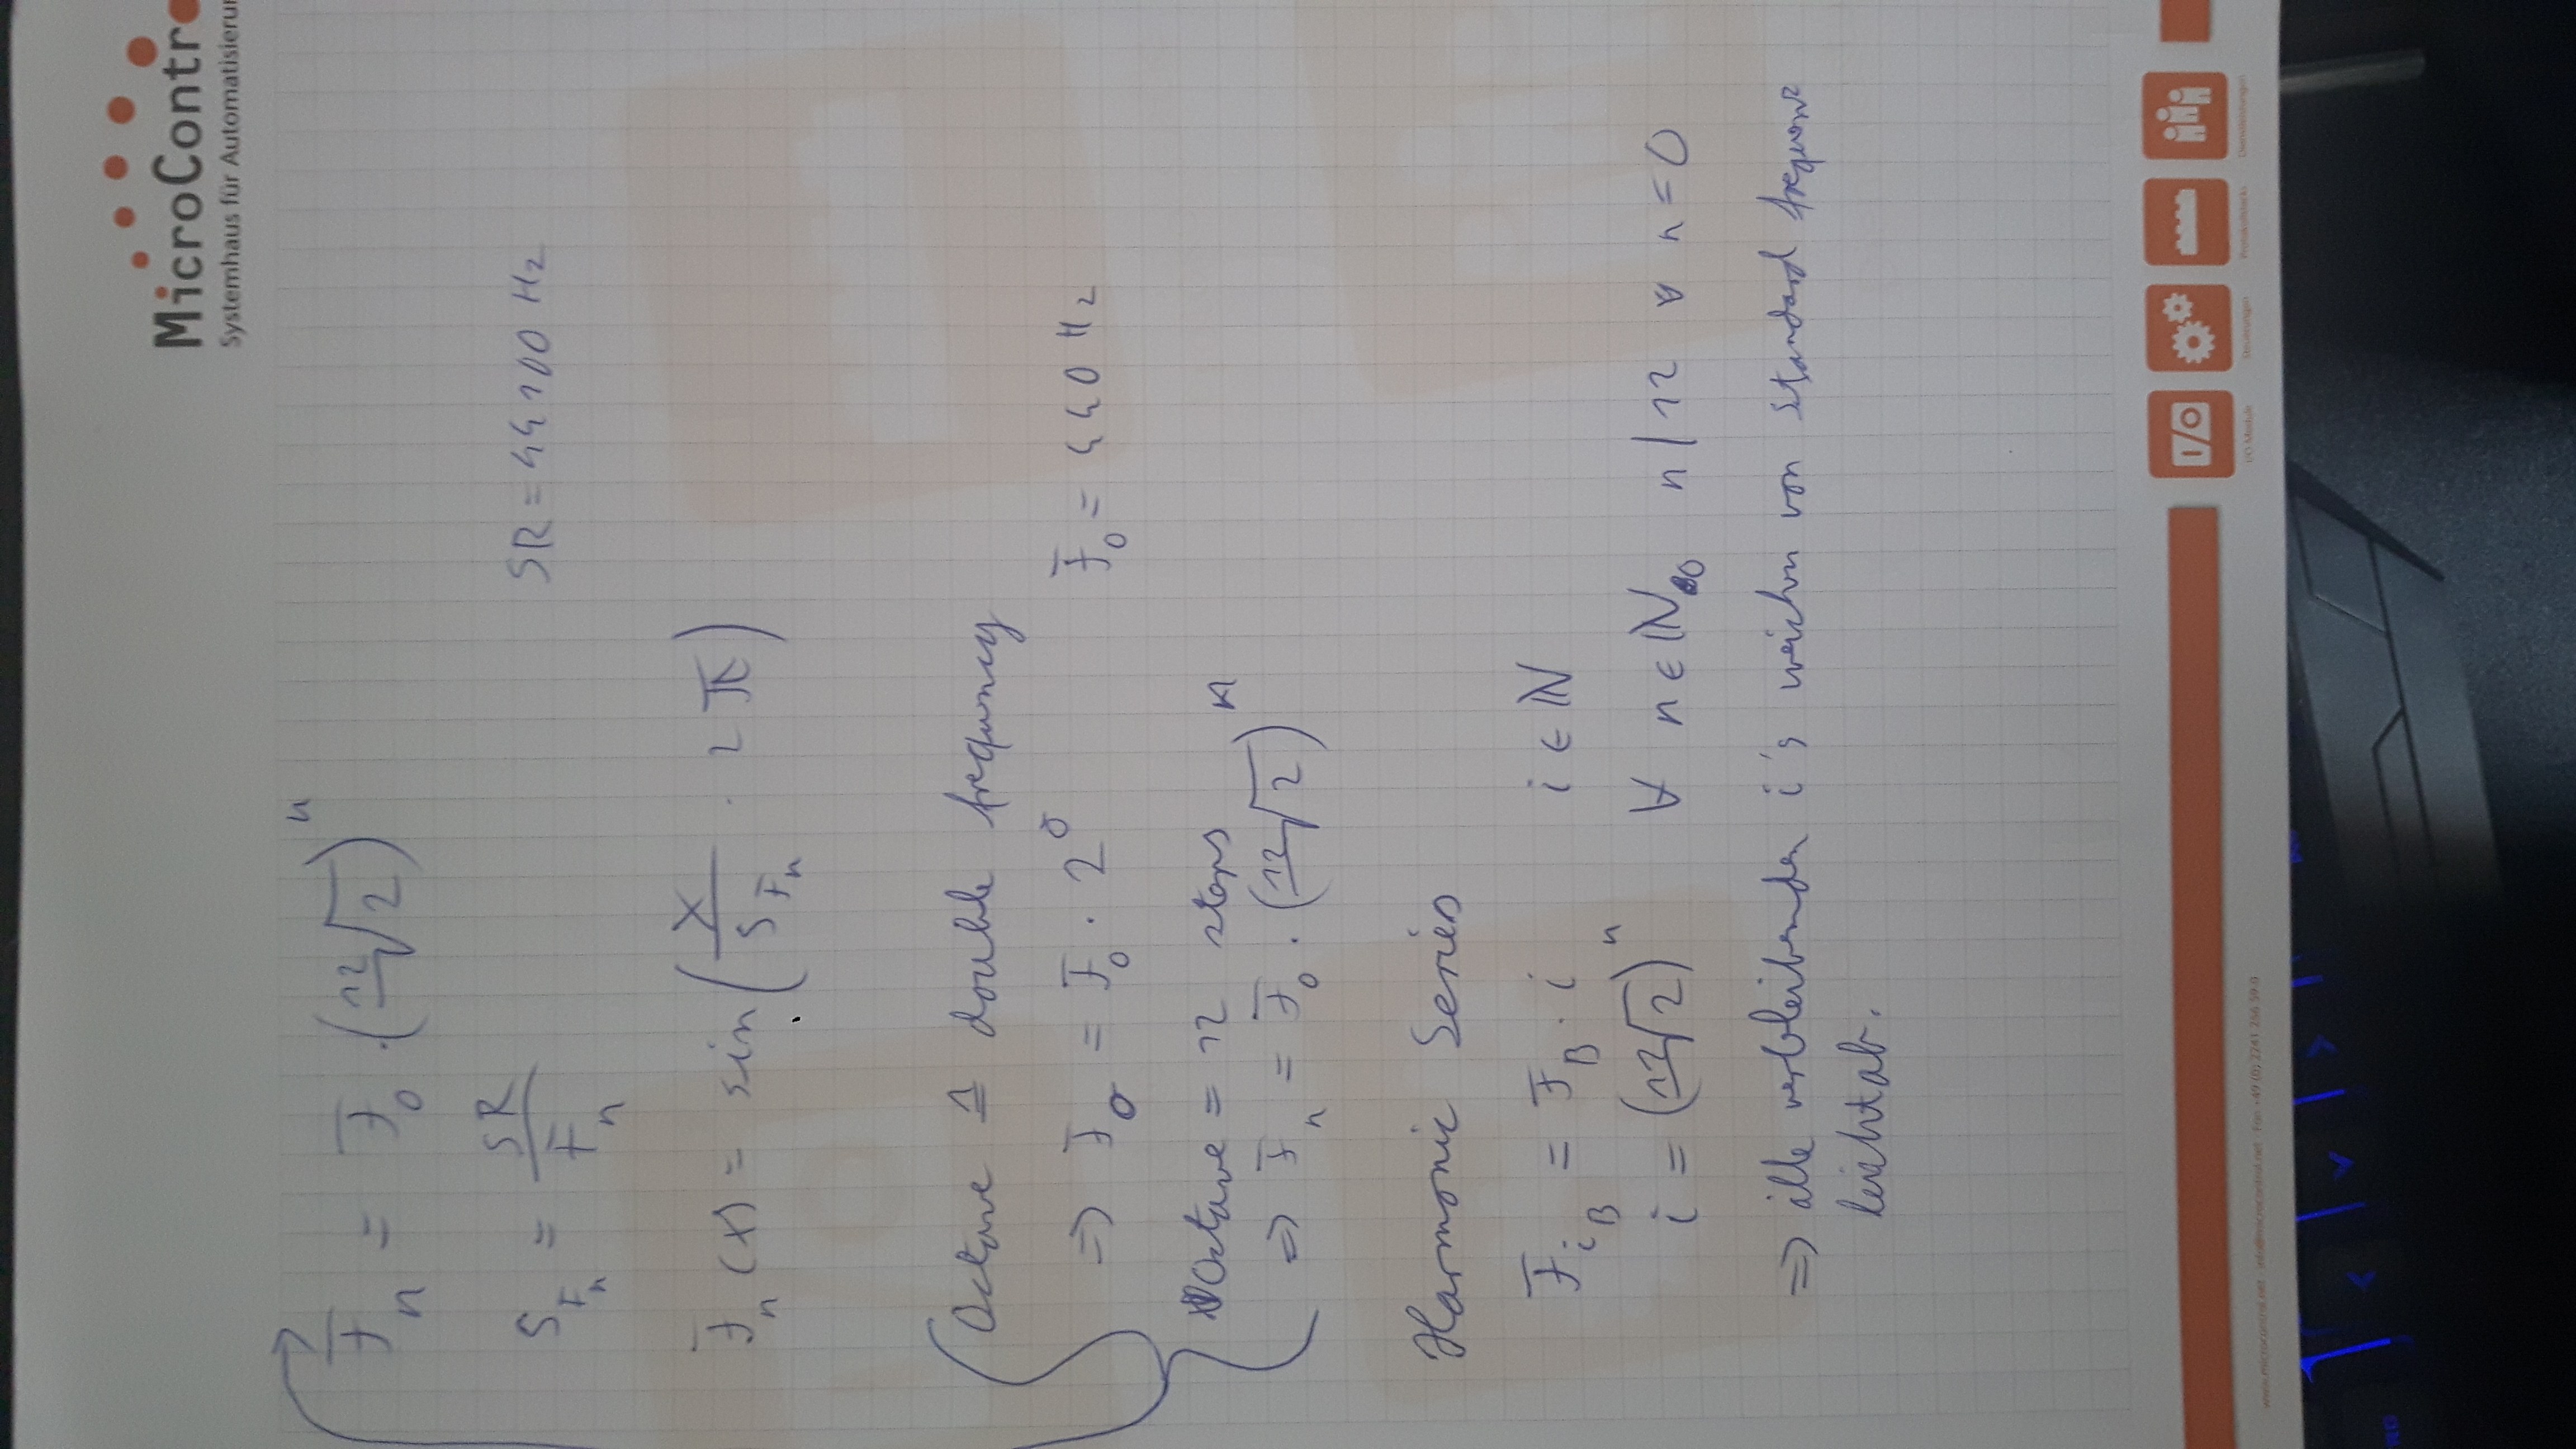 MicroContro
Systemhaus für Automatisierun
F_n = F_0 · (¹²√2)^n
S_{F_n} = SR / F_n    SR = 44100 Hz
F_n(x) = sin(x / S_{F_n} · 2π)
Octave ≙ double frequency
=> F_σ = F_0 · 2^σ    F_0 = 440 Hz
Octave = 12 steps
=> F_n = F_0 · (¹²√2)^n
Harmonic Series
F_{i_B} = F_B · i    i ∈ ℕ
i = (¹²√2)^n    ∀ n ∈ ℕ_0  n|12 ∨ n = 0
=> alle verbleibenden i's weichen von Standard frequenz
leicht ab.
I/O
I/O Module
Steuerungen
Protokollstacks
Dienstleistungen
www.microcontrol.net · info@microcontrol.net · Fon +49 (0) 2241 256 59-0